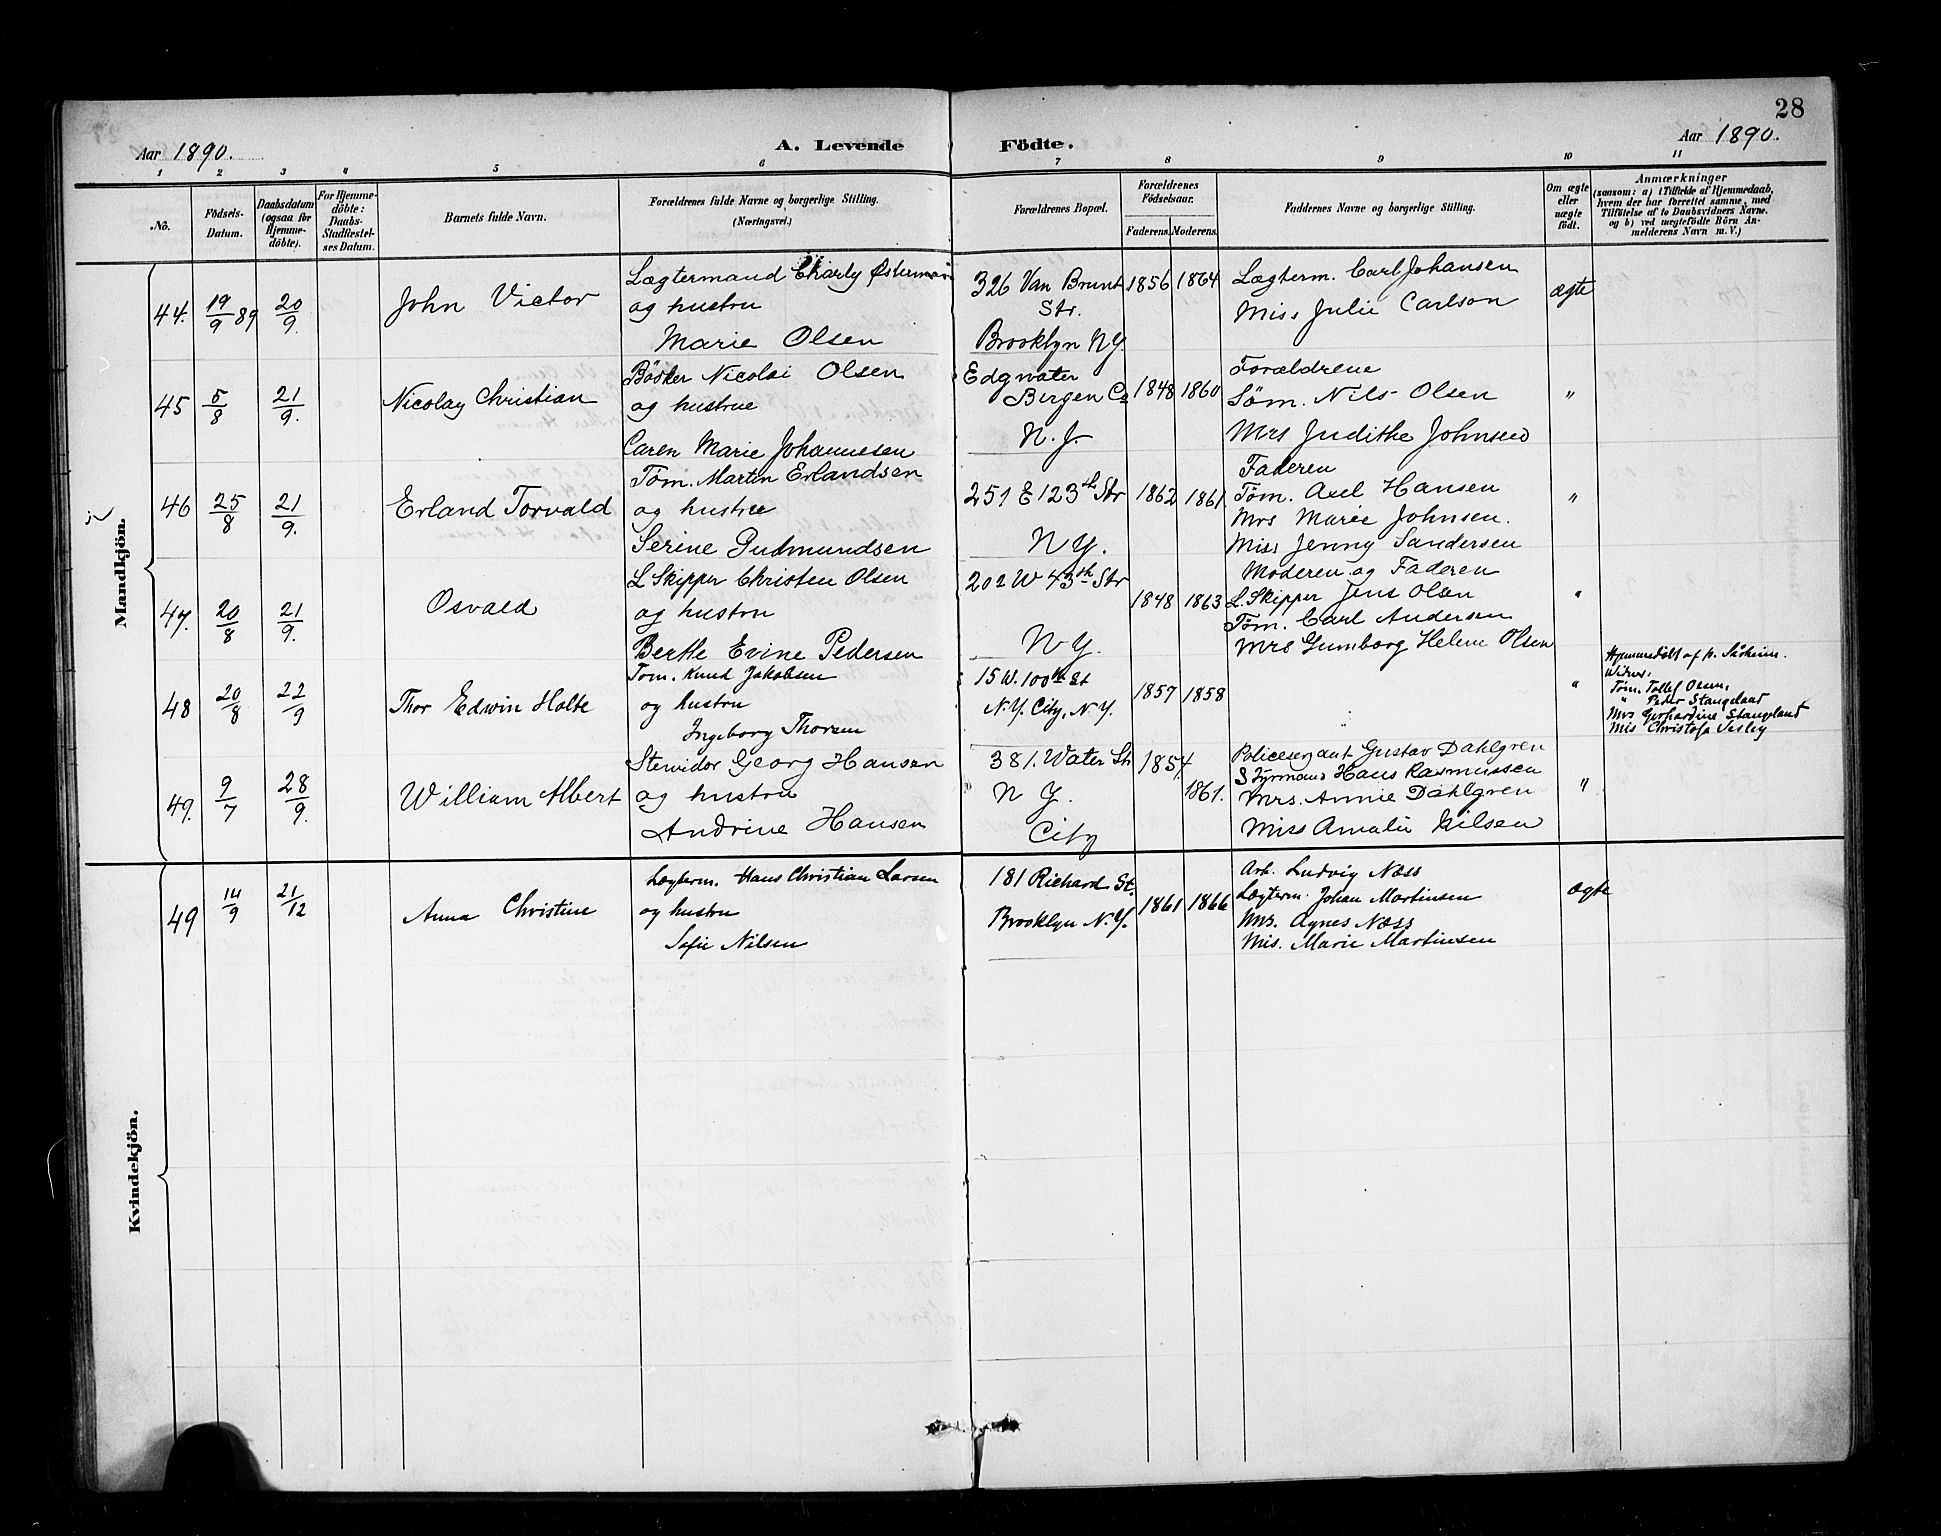 28
Aar 1890.
A. Levende Födte.
Aar 1890.
1 2 3 4 5 6 7 8 9 10 11
No.
Födsels-Datum.
Daabsdatum (ogsaa for Hjemme-döbte).
For Hjemme-döbte: Daabs-Stadfæstel-ses Datum.
Barnets fulde Navn.
Forældrenes fulde Navne og borgerlige Stilling.
(Næringsvei.)
Forældrenes Bopæl.
Forældrenes Födselsaar.
Faderens. Moderens.
Faddernes Navne og borgerlige Stilling.
Om ægte eller uægte födt.
Anmærkninger
(saasom: a) i Tilfælde af Hjemmedaab,
hvem der har forrettet samme, med
Tilföielse af to Daabsvidners Navne.
og b) ved uægtefödte Börn An-
melderens Navn m. V.)
Mandkjön.
44. 19/9 89 20/9. John Victor
Lægtermand Charly Østerman
og hustru
Marie Olsen
326 Van Brunt
Str.
Brooklyn N.Y.
1856 1864
Lægterm. Carl Johansen
Miss Julie Carlson
ægte
45 5/8 21/9. Nicolay Christian
Bösker Nicolai Olsen
og hustrue
Caren Marie Johannesen
Edgwater
Bergen Co
N. J.
1848 1860
Forældrene
Söm. Nils Olsen
Mrs Judithe Johnsen
"
46 25/8 21/9. Erland Torvald
Töm. Martin Erlandsen
og hustrue
Serine Gudmundsen
251 E 123th Str
N Y.
1862 1861.
Faderen
Töm. Axel Hansen
Mrs Marie Johnsen.
Miss Jenny Sandersen
"
47. 20/8 21/9. Osvald
L Skipper Christen Olsen
og hustru
Berthe Evine Pedersen
202 W 43th Str
N Y.
1848 1863
Moderen og Faderen
L. Skipper Jens Olsen
Töm. Carl Andersen
Mrs Gumborg Helene Olsen
"
48 20/8 22/9 Thor Edwin Holte
Tøm. Knud Jakobsen
og hustru
Ingeborg Thorsen
15 W. 100th St
N.Y. City, N.Y.
1857 1858
"
Hjemmedöbt af p. Saaheim.
Witns:
Tøm. Tollef Olsen,
" Peder Stangeland
Mrs Gerhardine Stangeland
Mis Christofa Vesley
49. 9/7 28/9. William Albert
Stewidor Georg Hansen
og hustru
Andrine Hansen
381. Water St
N Y.
City
1854 1861.
Policeserjant Gustav Dahlgren
Styrmand Hans Rasmussen
Mrs. Annie Dahlgren
Miss Amalie Nilsen
"
Kvindekjön.
49 14/9 21/12 Anna Christine
Lægterm. Hans Christian Larsen
og hustru
Sofie Nilsen
181 Richard St.
Brooklyn N.Y.
1861 1866
Arb. Ludvig Næss
Lægterm. Johan Martinsen
Mrs. Agnes Næss
Mis. Marie Martinsen
ægte